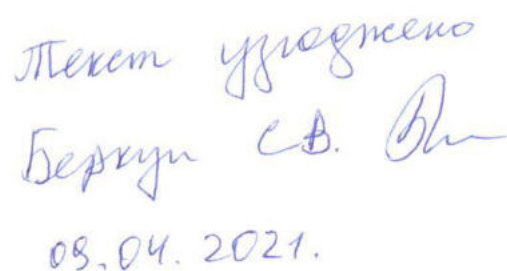 Текст узгоджено
Беркун С.В.
09.04.2021.